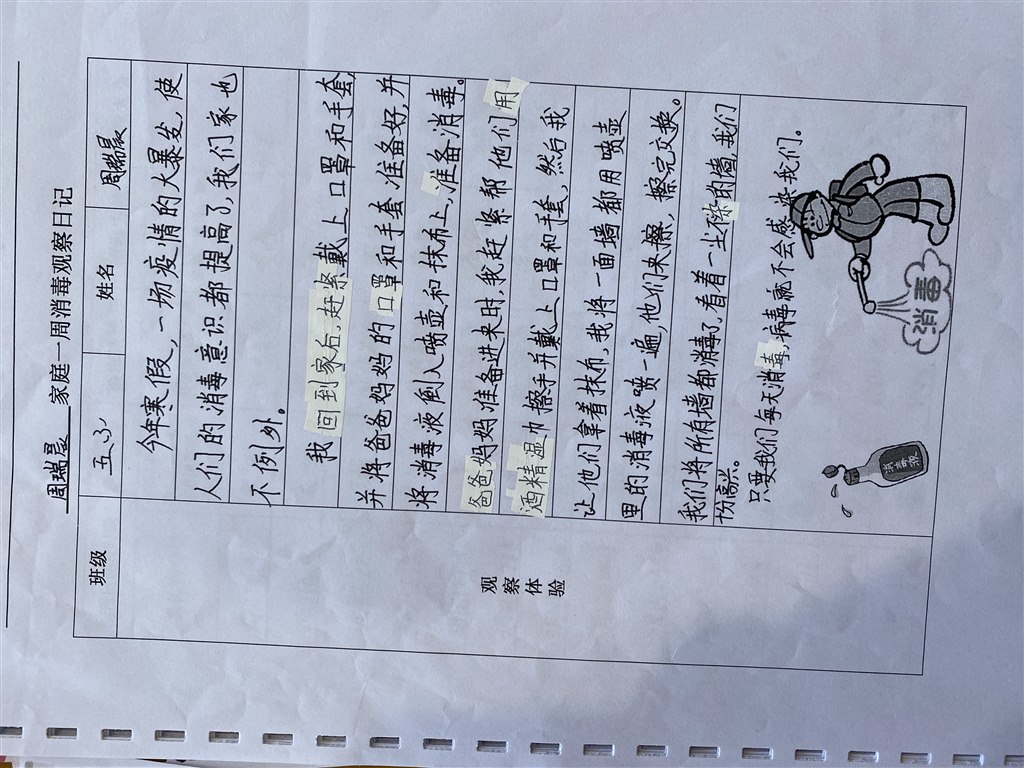 周瑞晨 家庭一周消毒观察日记
班级 五3 姓名 周瑞晨
今年寒假,一场疫情的大暴发,使
人们的消毒意识都提高了,我们家也
不例外。
我回到家后,赶紧戴上口罩和手套,
并将爸爸妈妈的口罩和手套准备好,并
将消毒液倒入喷壶和抹布上,准备消毒。
爸爸妈妈准备进来时,我赶紧帮他们用
酒精湿巾擦手并戴上口罩和手套,然后我
让他们拿着抹布,我将一面墙都用喷壶
里的消毒液喷一遍,他们来擦,擦完交换。
我们将所有墙都消毒了,看着一尘不染的墙,我们
十分高兴。
只要我们每天消毒,病毒就不会感染我们。
观察体验
消毒液
消毒